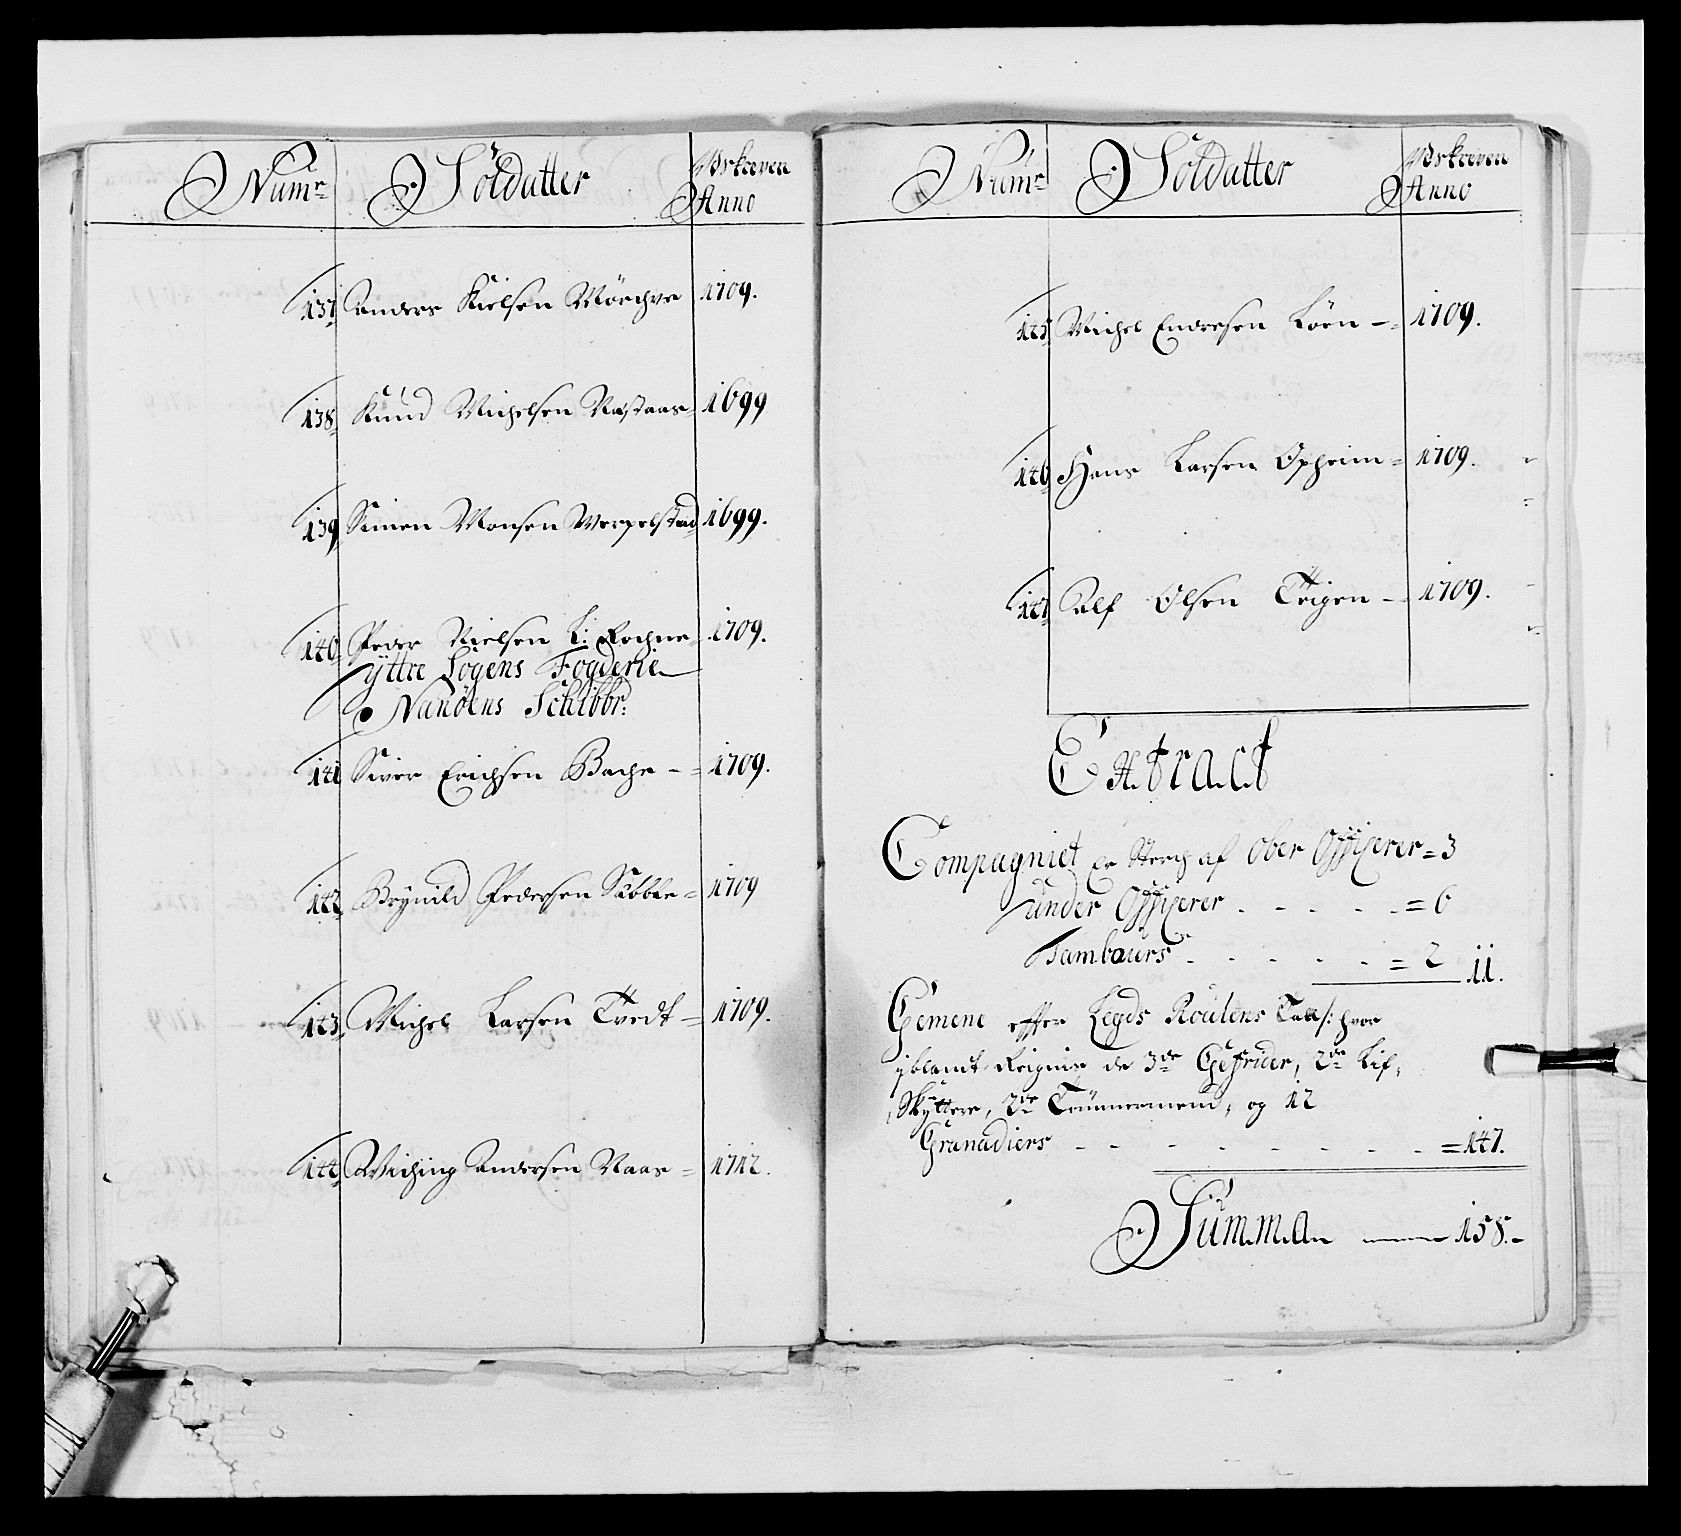 Num:r Soldatter Udskreven
Anno
137. Anders Nielsen Mörchve 1709.
138. Knud Michelsen Nastaas 1699
139. Simen Monsen Werpelstad 1699.
140. Peder Nielsen L: Rochne 1709.
yttre Sogens Fogderie
Nunöens Schibbr:
141 Siver Erichsen Bache - = 1709.
142. Brynild Pedersen Subble = 1709
143. Michel Larsen Tvedt = 1709.
144. Wiching Andersen Naas = 1712.
Num:r Soldatter Udskreven
Anno
145. Michel Endresen Löen -= 1709.
146. Hans Larsen Opheim = 1709.
147. Alf Olsen Teigen - 1709.
Extract
Compagniet er Sterch af Ober Officerer = 3
under Officerer . - - - . = 6
Tambours - - - - - = 2 11.
Gemene effter Legds Roulens Tall /: hvor
iblant Reignis de 3de Gefrider, 2de Lif,
Skyttere, 2de Tömmermend, og 12
Granadiers - - - - - - - = 147.
Summa 158.-